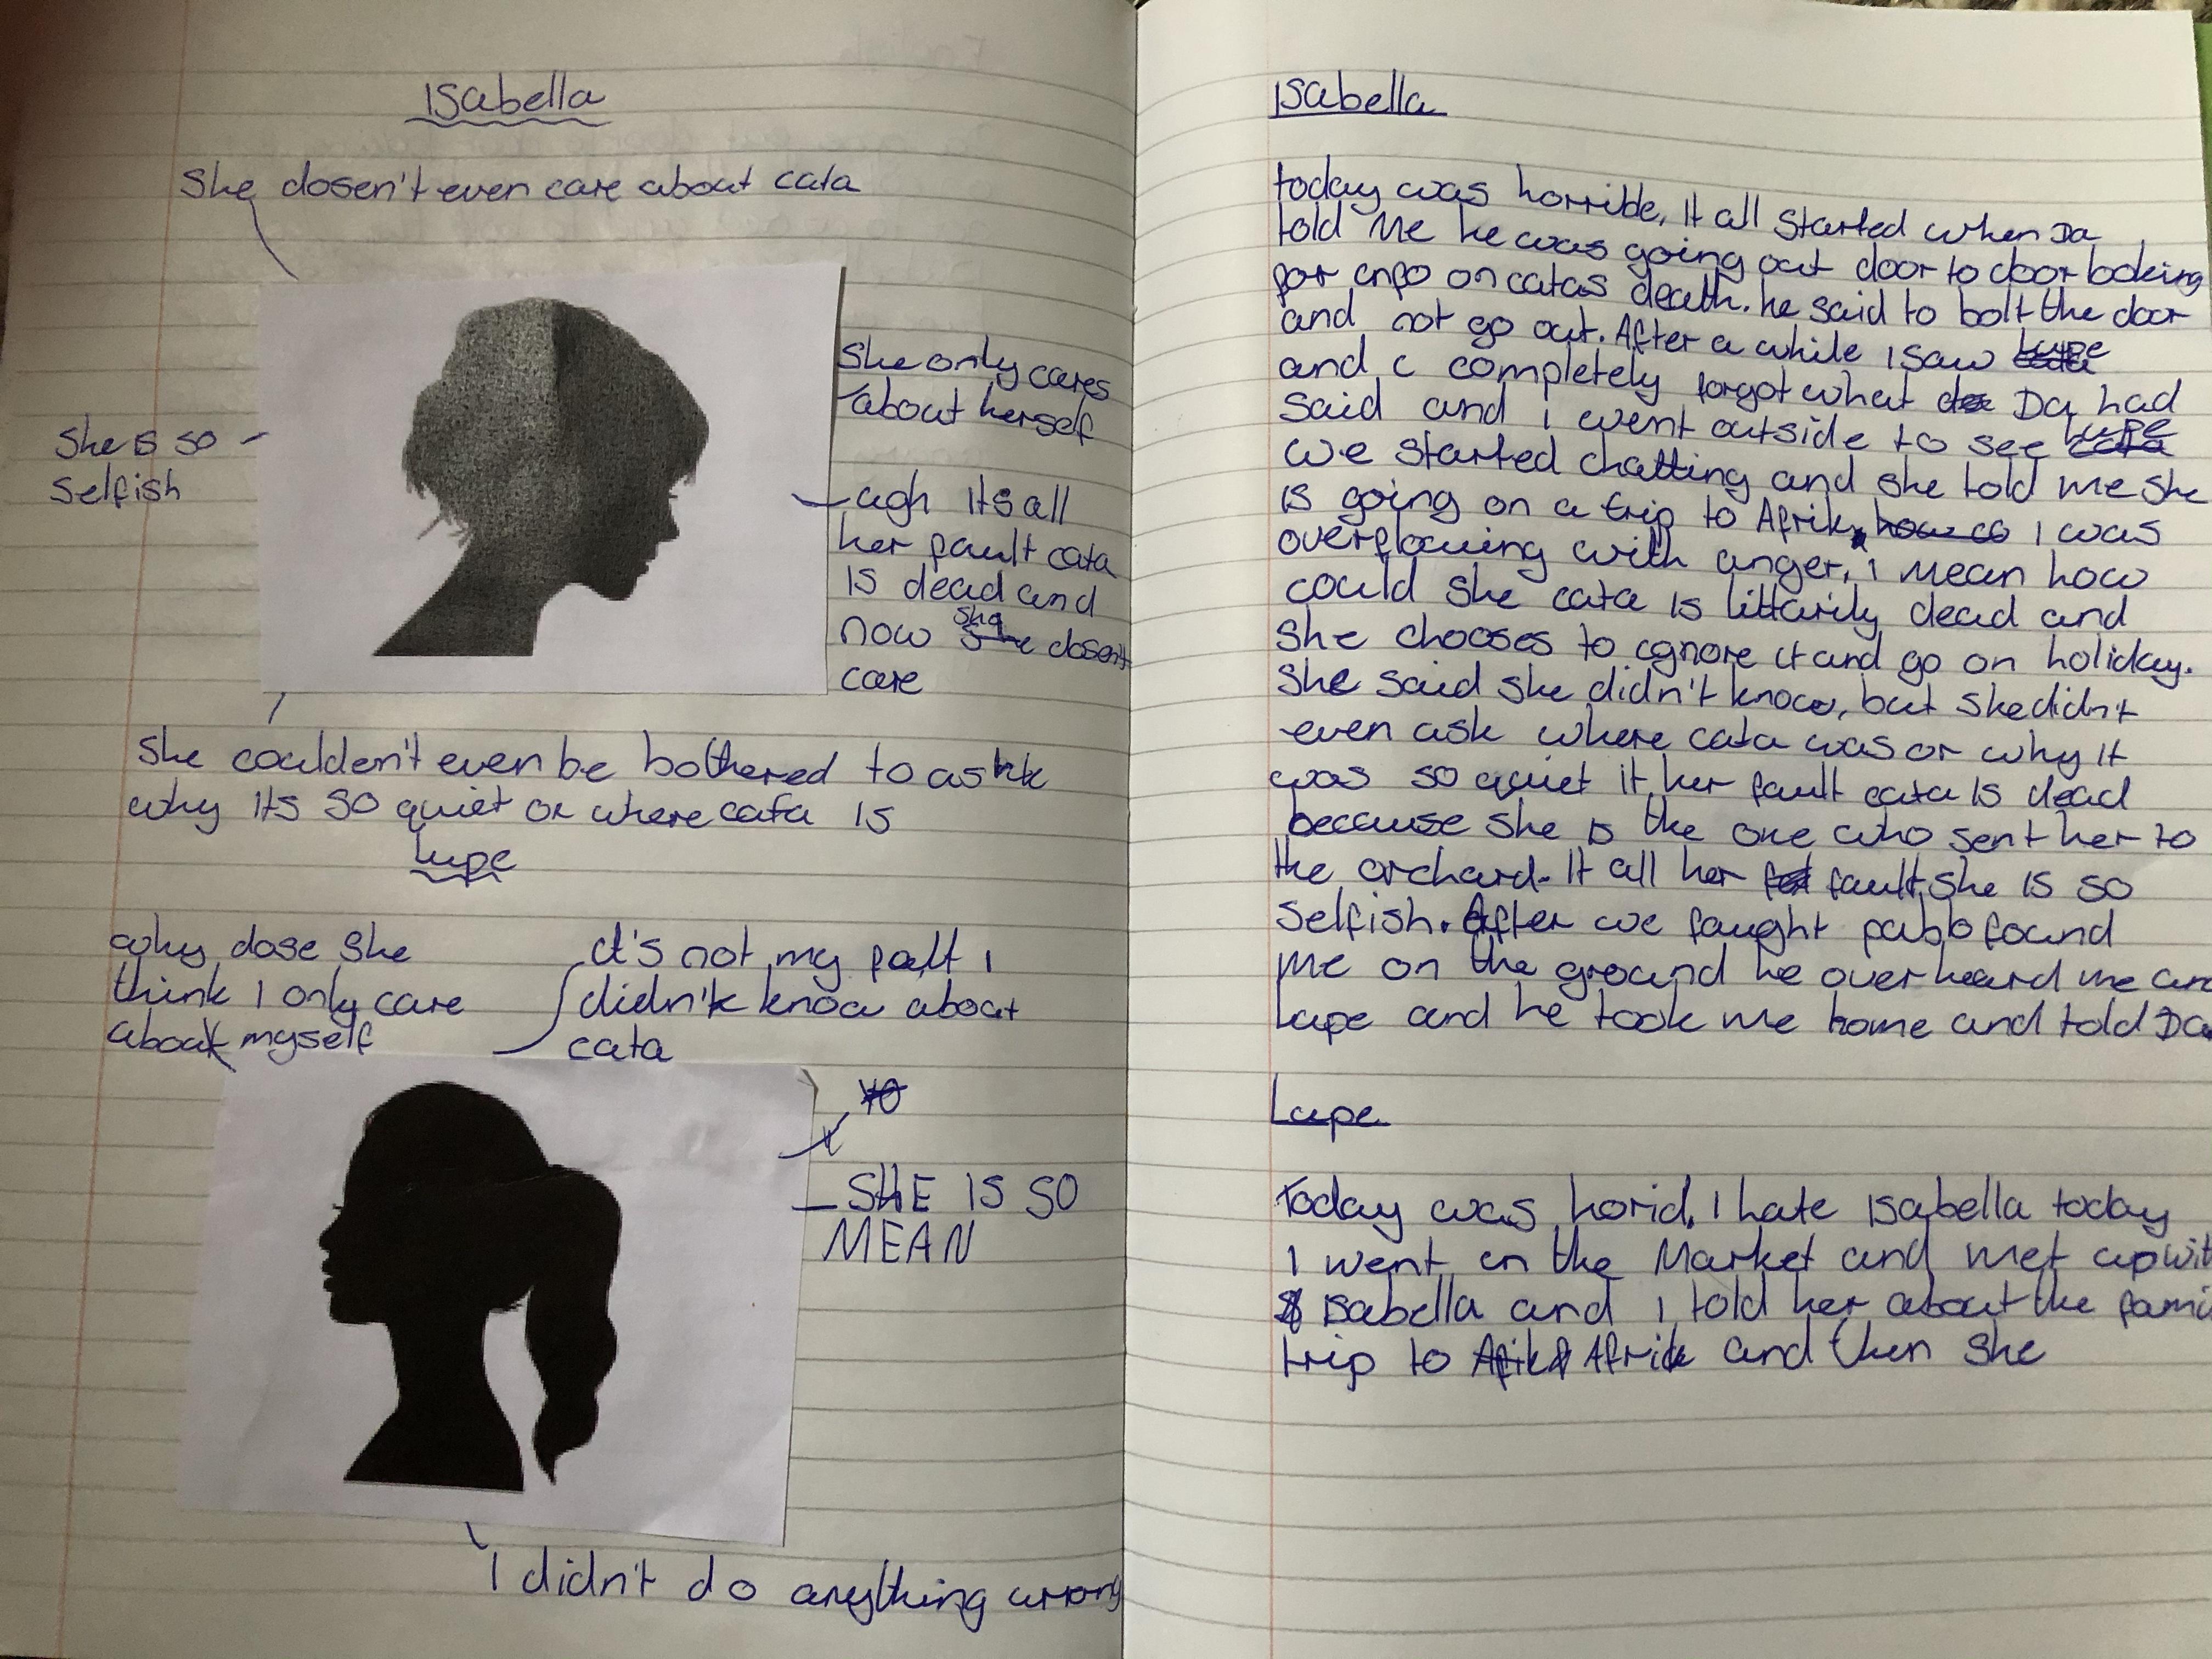 Isabella
She dosen't even care about cata
She only cares
about herself
She is so
selfish
ugh its all
her fault cata
is dead and
now she dosent
care
She couldn't even be bothered to ask
why its so quiet or where cata is
Lupe
why dose she
think I only care
about myself
it's not my falt I
didn't know about
cata
SHE IS SO
MEAN
I didn't do anything wrong
Isabella
today was horrible, It all started when Da
told me he was going out door to door looking
for info on catas death. he said to bolt the door
and not go out. After a while I saw Lupe
and i completely forgot what Da had
said and i went outside to see Lupe
we started chatting and she told me she
is going on a trip to Afrik, I was
overflowing with anger, i mean how
could she cata is littarily dead and
she chooses to ignore it and go on holiday.
She said she didn't know, but she didn't
even ask where cata was or why it
was so quiet it her fault cata is dead
because she is the one who sent her to
the orchard. It all her fault she is so
selfish. After we faught pablo found
me on the ground he over heard me and
Lupe and he took me home and told Da.
Lupe
Today was horid. I hate Isabella today
I went in the Market and met up wit
Isabella and i told her about the fami
trip to Afrik and then she